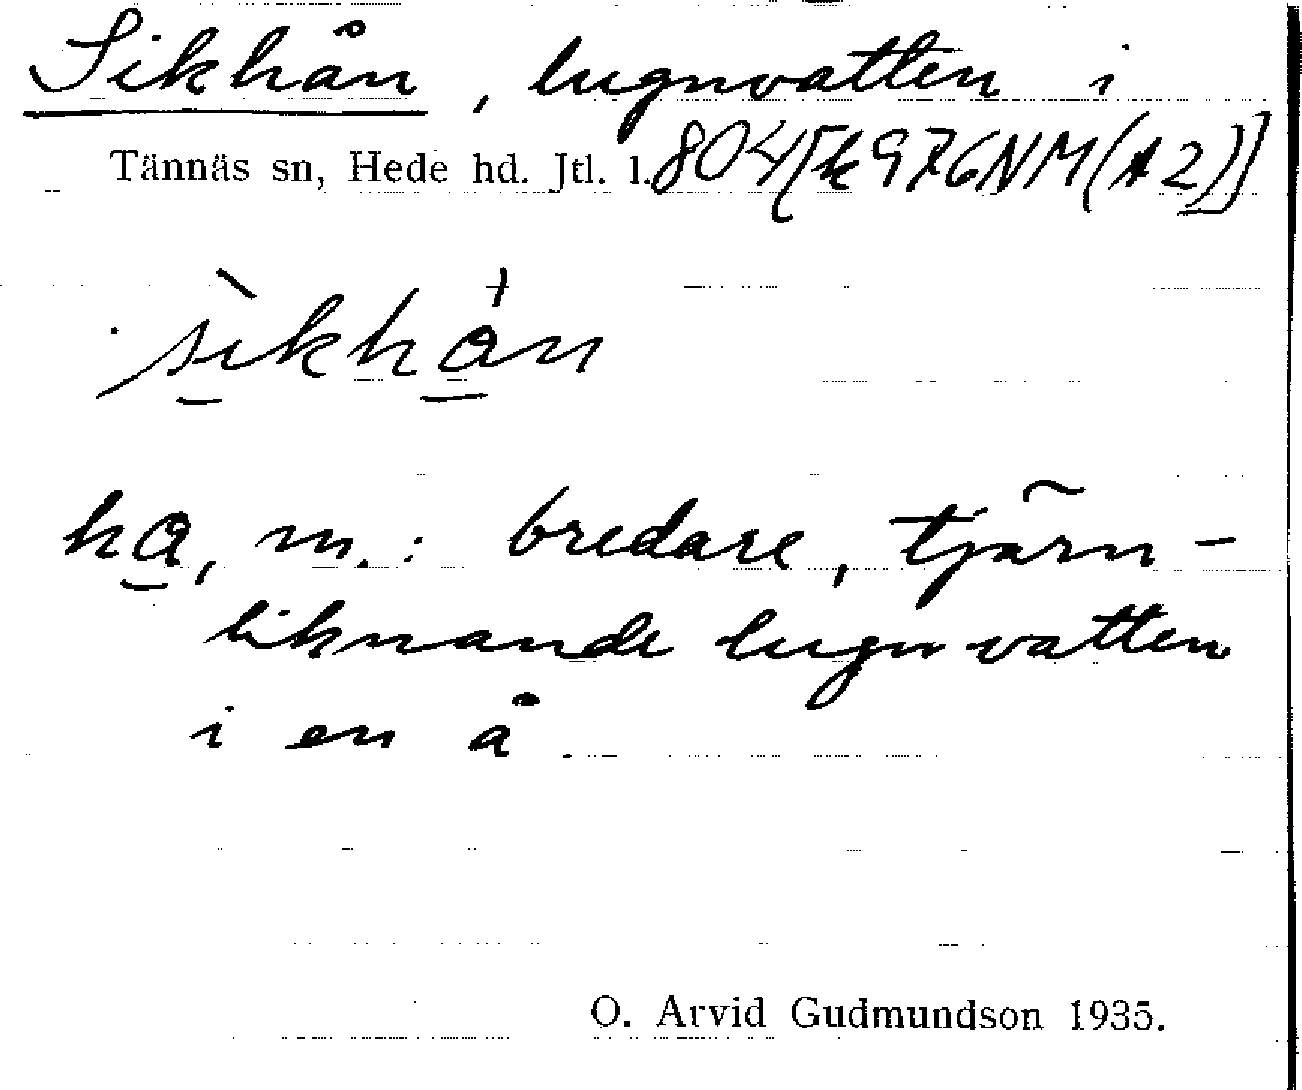 Sikhån, lugnvatten i
Tännäs sn, Hede hd. Jtl. l. 804[k976NM(A2)]
sikhån
ha, m.: bredare, tjärn-
liknande lugnvatten
i en å.
O. Arvid Gudmundson 1935.